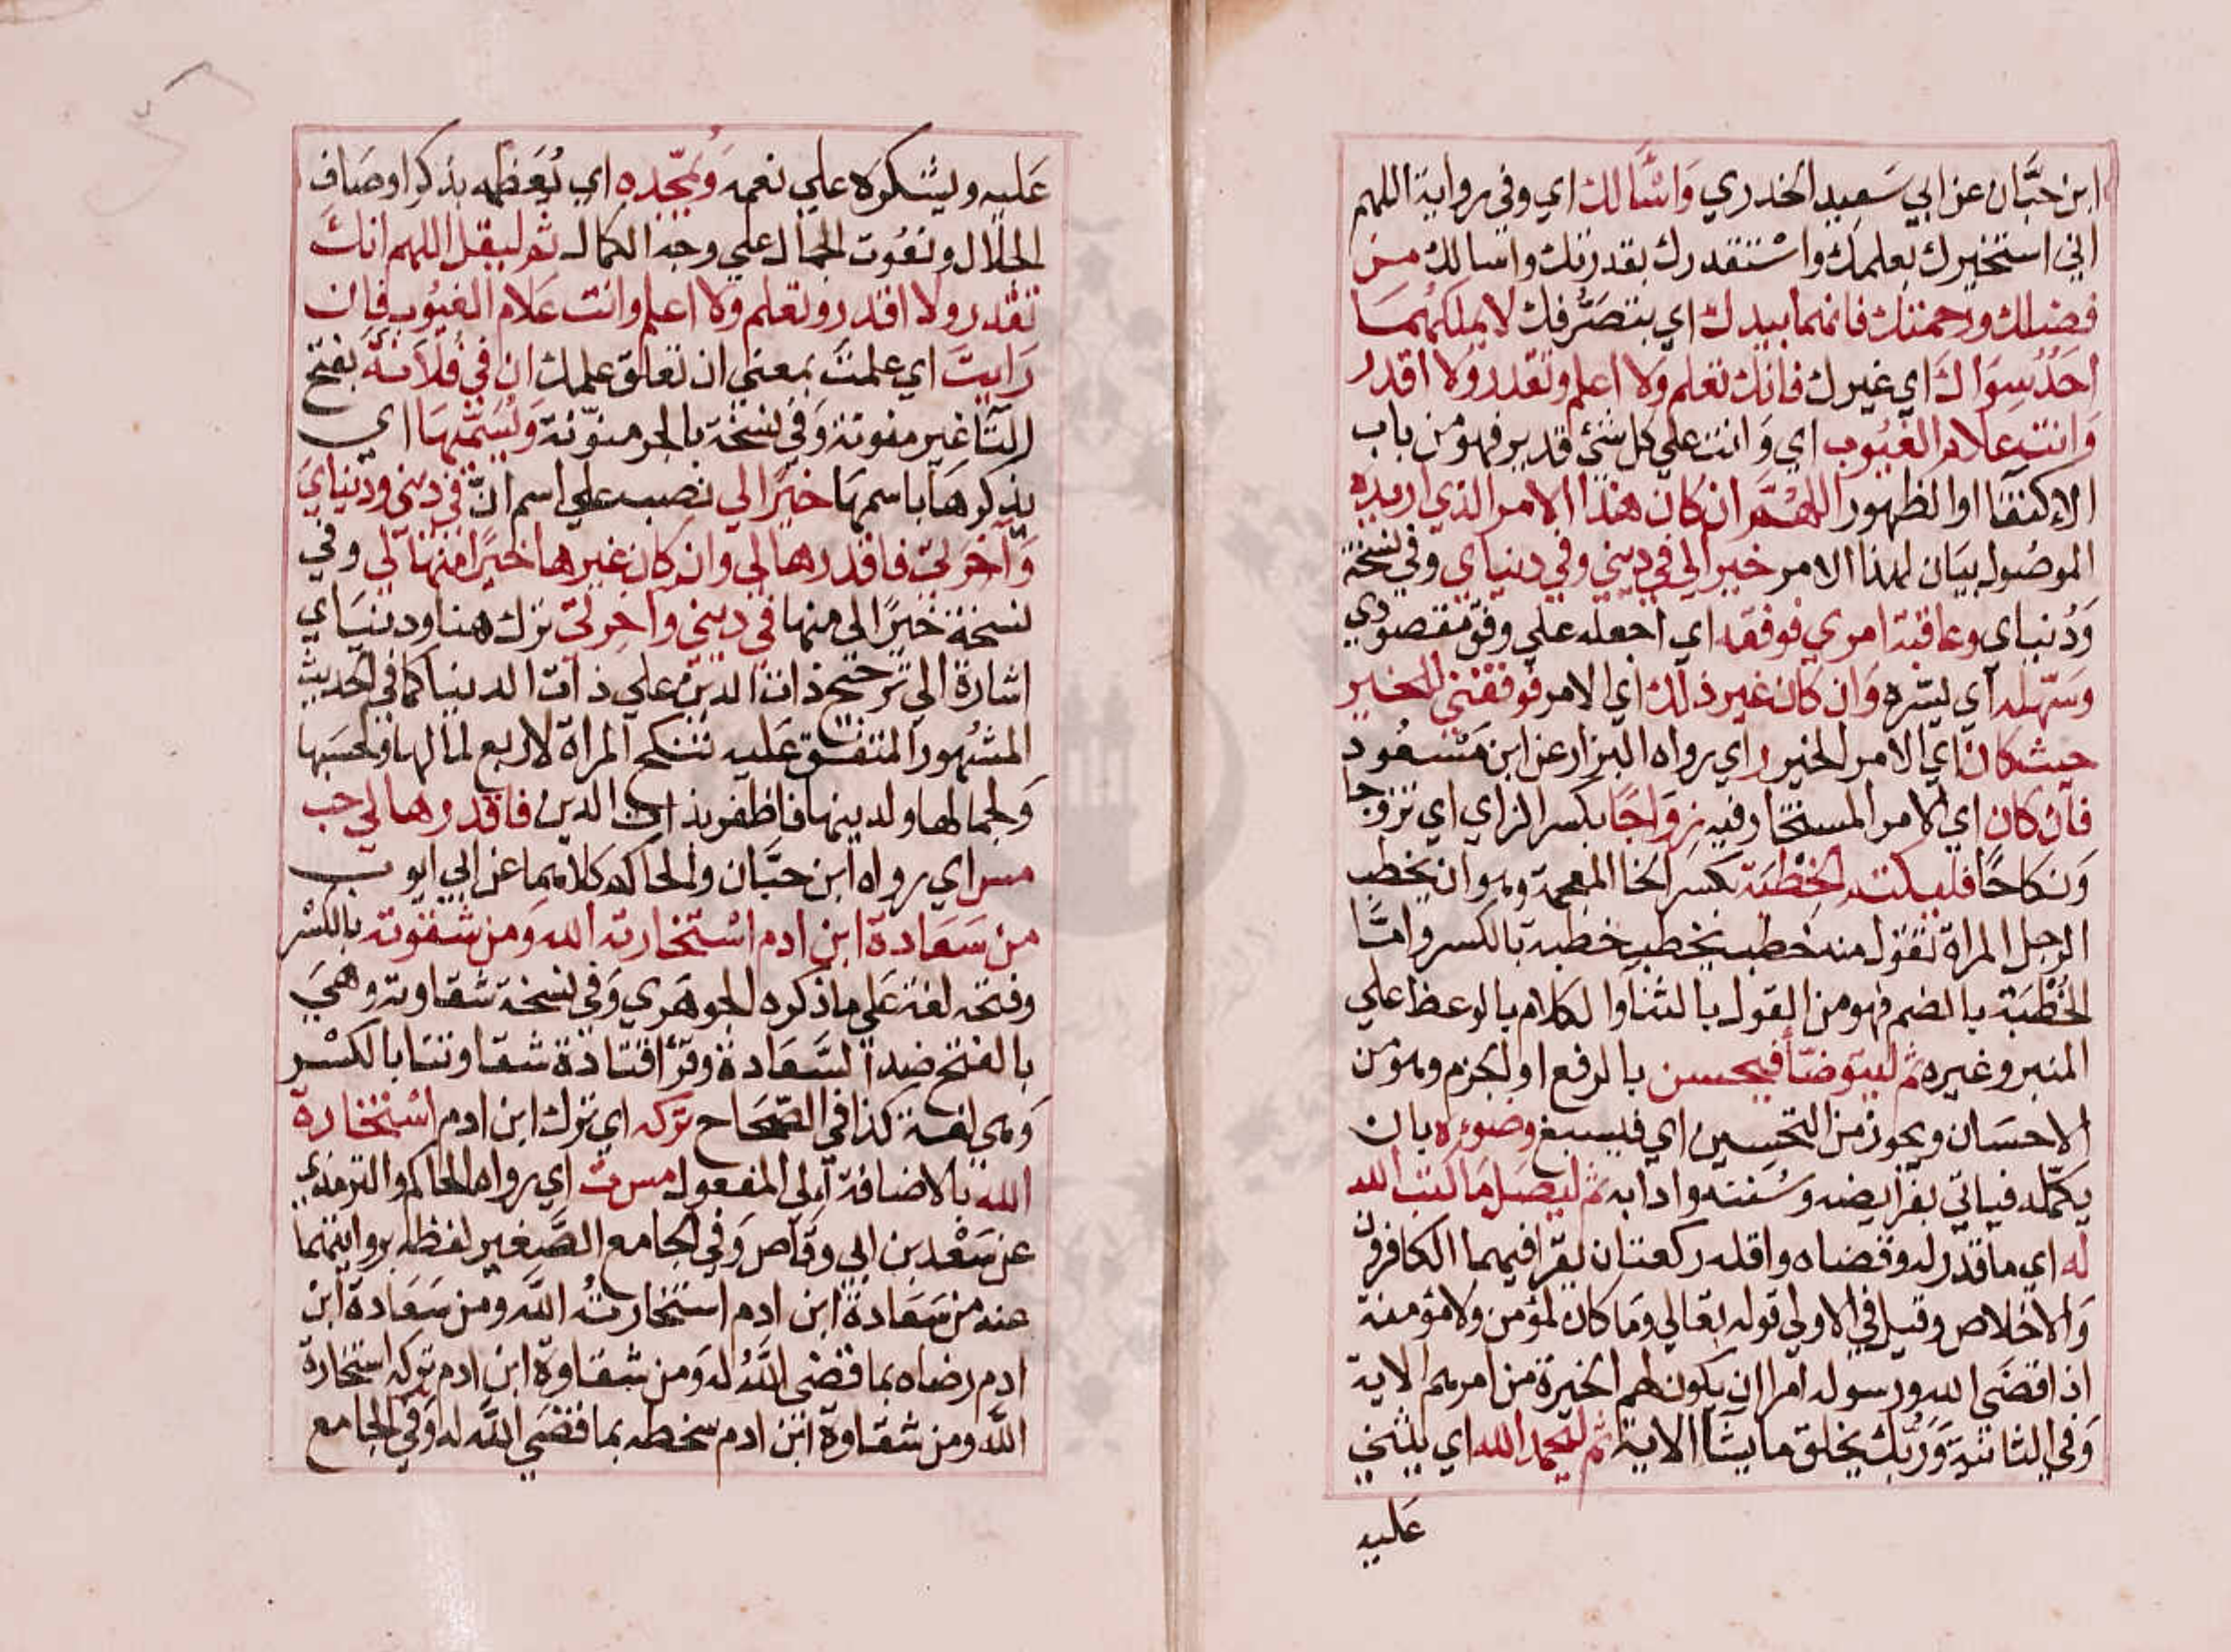 ابن حبَّان عن ابي سَعِيد الخدري وَاسْأَلك اي وفي رواية اللهم
اني استخيرك بعلمك واسْتقدرك بقدرتك واسالك من
فضلك ورحمتك فانهما بيدك اي بتصَرُّفك لا يملكهما
احَدٌ سِوَاك اي غيرك فانك تعلم وَلا اعلم وتقدر ولا اقدر
وَانت علام الغيُوب اي وَانت علي كل شئ قدير فهو من باب
الاكتفا او الظهور اللهُمَّ ان كان هَذا الامر الذي اريده
الموصُول بيَان لهذا الامر خيرا لي في ديني وفي دنياي وفي نسخة
وَدُنياي وعاقبة امري فوفقه اي اجعله علي وفق مقصودي
وسَهّله اي يسّره وَان كان غير ذلك اي الامر فوفقني للخير
حيث كان اي الامر الخير ر اي رواه البزار عن ابن مَسْعُود
فان كان اي الامر المستخار فيه زِوَاجًا بكسر الزاي اي تزوجا
وَنكاحًا فليكتم الخِطْبَة بكسر الخا المعجمة وهو ان يخطب
الرجل المراة تقول منه خطب يخطب خطبة بالكسر وامَّا
الخُطْبَة بالضم فهو من القول بالثنا والكلام بالوعظ علي
المنبر وغيره ثم ليتوضّأ فيحسن بالرفع او الجزم وهو من
الاحسَان ويجوز من التحسِين اي فيسبغ وضوءه بان
يكمّله فياتي بفرايضه وسُننه وادابه ثم ليصَل مَا كتب الله
له اي ما قدر له وقضاه واقله ركعتان يقرا فيهما الكافرون
وَالاخلاص وقيل في الاولي قوله تعالي وَما كان لمؤمن ولا مؤمنة
اذا قضَي الله ورسوله امرا ان يكون لهم الخيرة من امرهم الاية
وَفي الثانية وَرَبّك يخلق ما يشا الاية ثم ليحمد الله اي يثني
عَليه
عَليه ويشكره علي نعمه وَيُمَجّده اي يُعَظمه بذكر اوصَاف
الجلال ونعُوت الجمال علي وجه الكمال ثم ليقل اللهم انك
تقدر ولا اقدر وتعلم ولا اعلم وانت عَلام الغيُوب فان
رَايتَ اي علمتَ بمعني ان تعلق علمك ان في فُلانَةَ بفتح
التا غير منونة وَفي نسخة بالجر منوّنة وَيُسَمّيهَا اي
يذكرهَا باسمهَا خيرًا لي نصب علي اسم انّ في ديني ودنيايَ
وَآخرتي فاقدرها لي وان كان غيرها خيرًا منها لي وفي
نسخة خيرًا لي منها في ديني وآخرتي ترك هنا ودنيَاي
اشارة الي ترجيح ذات الدين علي ذات الدنيا كما في الحديث
المشهور المتفق عَليه تنكح المراة لاربع لمالها ولحسَبها
وَلجمالها ولدينها فاظفر بذات الدين فاقدرها لي حب
مس اي رواه ابن حبَّان والحاكم كلاهما عن ابي ايوب
من سَعَادة ابن ادم اسْتخارته الله وَمن شقوته بالكسْر
وفتحه لغة عَلي ما ذكره الجوهَري وَفي نسخة شقاوته وهَيَ
بالفتح ضد السَّعَادة وقرا قتَادَة شقاوتنا بالكسْر
وَهي لغة كذا في الصِّحَاح تركه اي ترك ابن ادم اسْتخارة
الله بالاضافة الي المفعول مس ت اي رواه الحاكم والترمذي
عن سَعْد بن ابي وقّاص وَفي الجامع الصَّغير لفظه بروايتهما
عنه من سَعَادة ابن ادم استخارتُه اللّه ومن سَعَادة ابن
ادم رضاه بما قضي اللَّهُ له وَمن شقاوة ابن ادم تركه استخارة
اللَّه ومن شقاوة ابن ادم سخطه بما قضَي اللَّه له وَفي الجامع